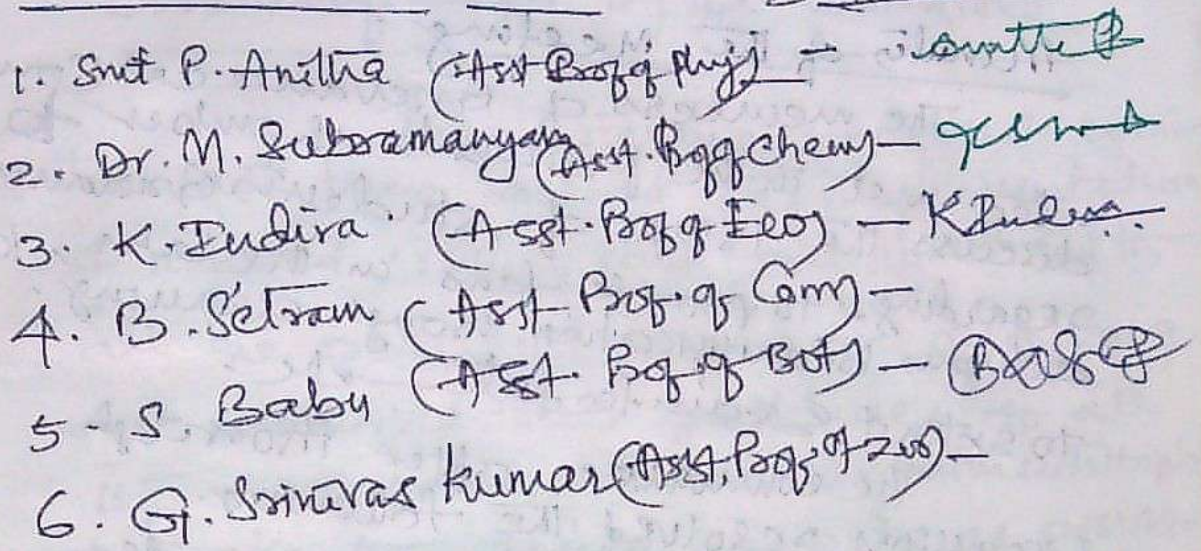 1. Smt P. Anitha (Asst Prof of Phy) –
2. Dr. M. Subramanyam (Asst. Prof of Chem) –
3. K. Indira (Asst. Prof of Eco) – K Indira
4. B. Setram (Asst. Prof. of Com) –
5. S. Babu (Asst. Prof. of Bot) –
6. G. Srinivas Kumar (Asst. Prof. of Zoo) –